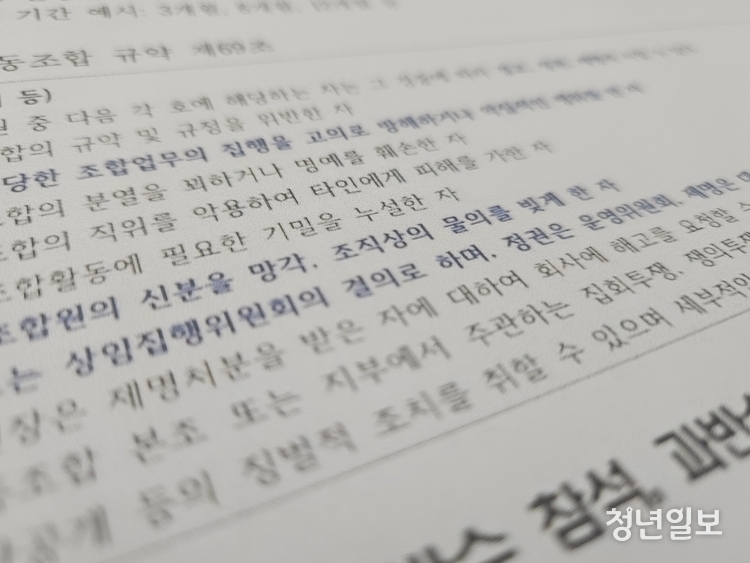 기간 예시: 3개월, 6개월, 12개월 등
동조합 규약 제69조
등)
중 다음 각 호에 해당하는 자는 그
합의 규약 및 규정을 위반한 자
당한 조합업무의 집행을 고의로 방해하거나
합의 분열을 꾀하거나 명예를 훼손한 자
조합의 직위를 악용하여 타인에게 피해를 가한 자
조합활동에 필요한 기밀을 누설한 자
조합원의 신분을 망각, 조직상의 물의를 빚게 한 자
는 상임집행위원회의 결의로 하며, 정권은 운영위원회, 제명은
장은 제명처분을 받은 자에 대하여 회사에 해고를 요청할 수
조합 본조 또는 지부에서 주관하는 집회투쟁, 쟁의투쟁
공개 등의 징벌적 조치를 취할 수 있으며 세부적인
참석, 과반
청년일보